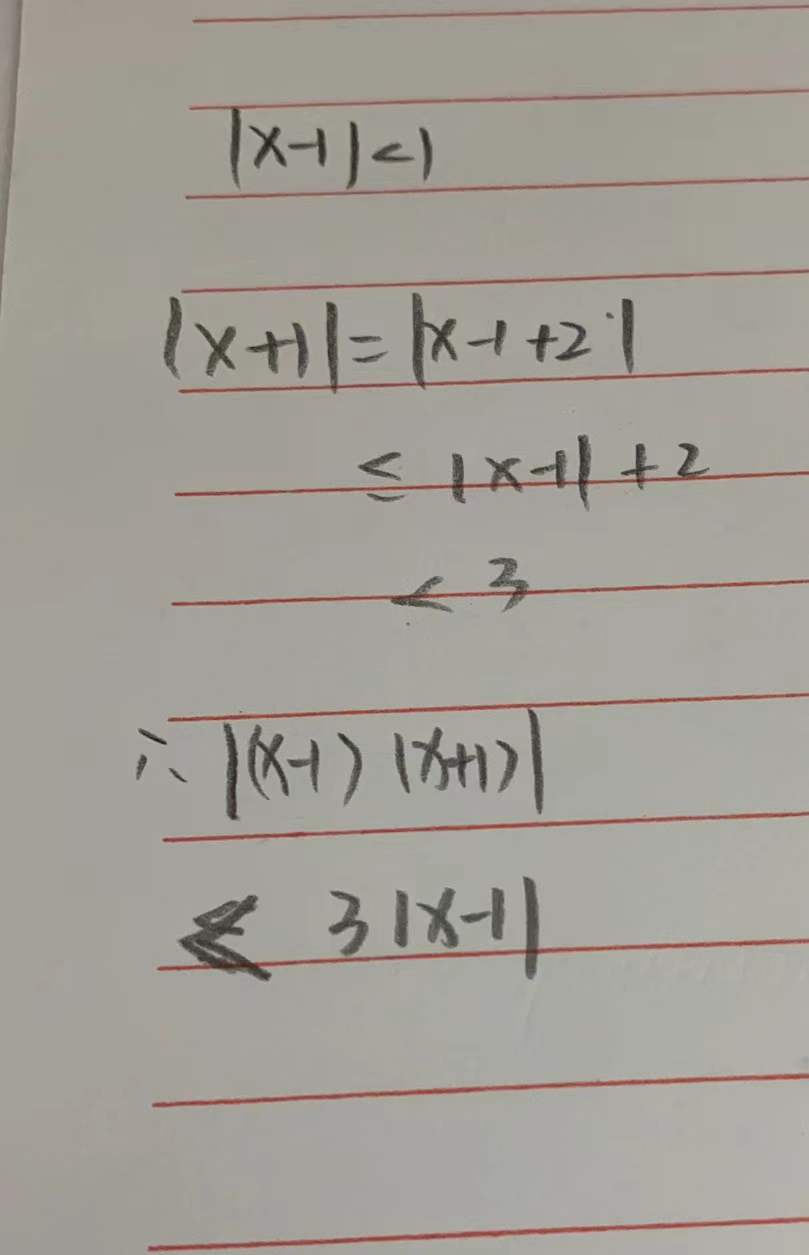 |x-1|<1
|x+1|=|x-1+2|
≤ |x-1|+2
< 3
∴ |(x-1)(x+1)|
≤ 3|x-1|